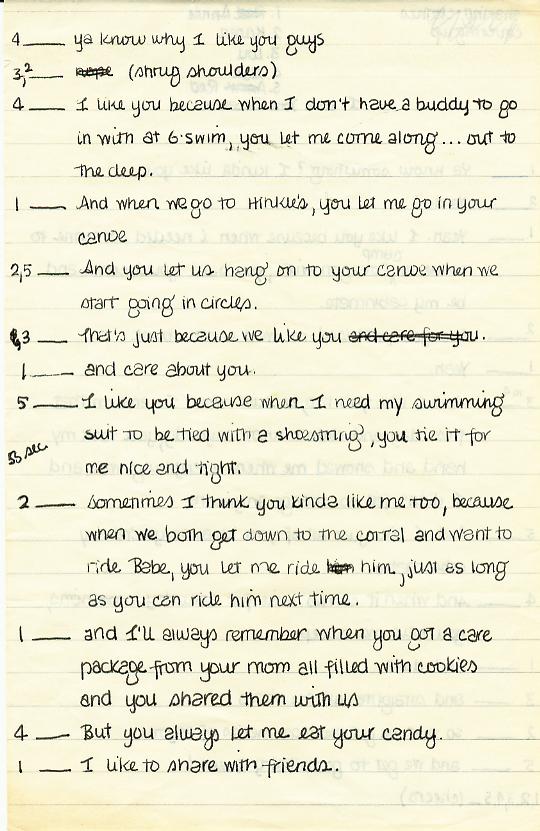 4 ___ ya know why I like you guys
3,2 ___ (shrug shoulders)
4 ___ I like you because when I don't have a buddy to go
in with at G-swim, you let me come along... out to
the deep.
1 ___ And when we go to Hinkle's, you let me go in your
canoe
2,5 ___ And you let us hang on to your canoe when we
start going in circles.
3 ___ That's just because we like you and care for you.
1 ___ and care about you.
5 ___ I like you because when I need my swimming
suit to be tied with a shoestring, you tie it for
53 sec.
me nice and tight.
2 ___ sometimes I think you kinda like me too, because
when we both get down to the corral and want to
ride Babe, you let me ride him, just as long
as you can ride him next time.
1 ___ and I'll always remember when you got a care
package from your mom all filled with cookies
and you shared them with us
4 ___ But you always let me eat your candy.
1 ___ I like to share with friends.